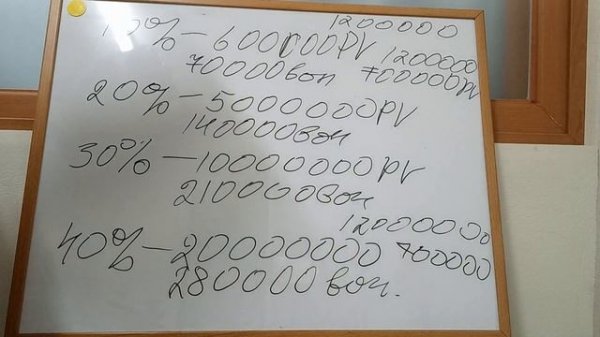 1200000
10% — 600000PV 1200000
70000вон 700000PV
20% — 5000000PV
140000вон
30% — 10000000PV
210000вон
1200000
40% — 20000000 700000
280000 вон.